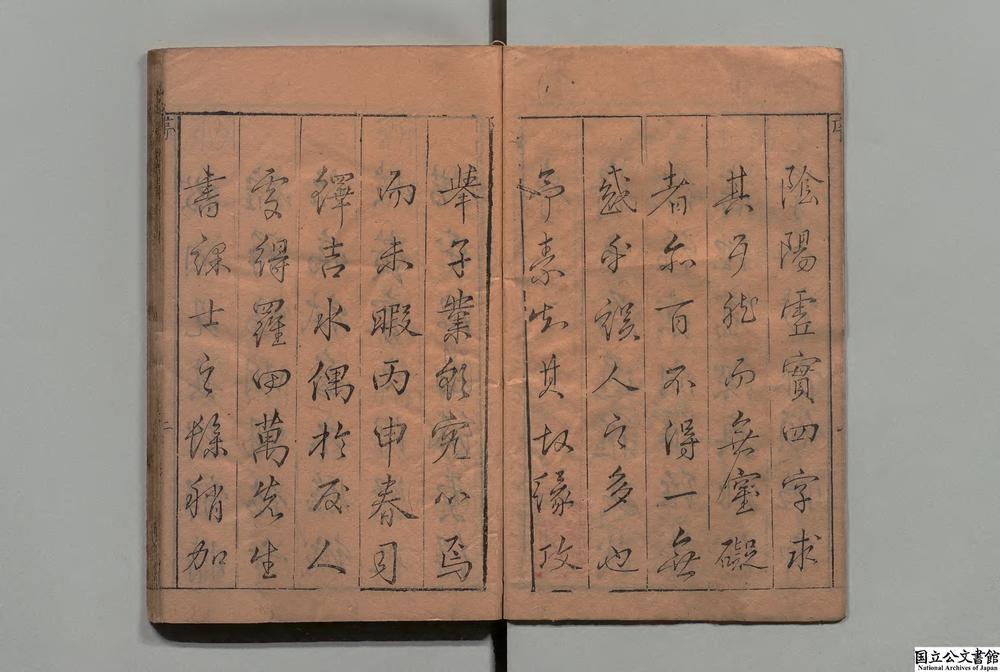 陰陽虛實四字求
其巧發而無窒礙
者亦百不得一無
惑乎誤人之多也
予素知其故緣攻
舉子業欲究心焉
而未暇丙申春司
鐸吉水偶於友人
處得羅田萬先生
書課士之餘稍加
序
二
国立公文書館
National Archives of Japan